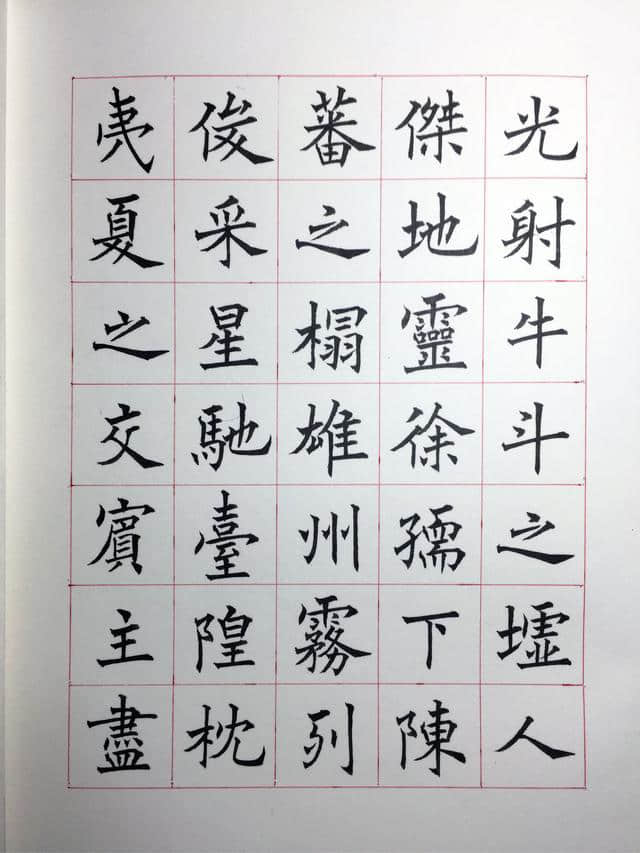 光射牛斗之墟人
傑地靈徐孺下陳
蕃之榻雄州霧列
俊采星馳臺隍枕
夷夏之交賓主盡